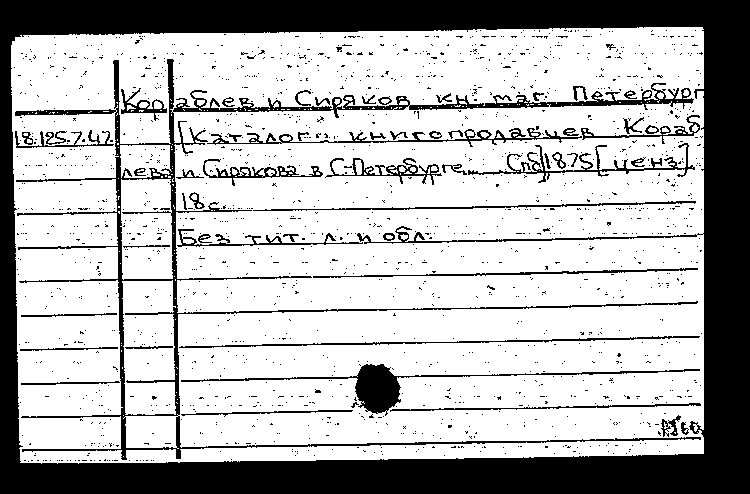 Кораблев и Сиряков кн. маг. Петербург
18.125.7.47. [Каталог книгопродавцев Кораб
лева и Сирякова в С.-Петербурге. Спб] 1875 [ценз.]
18 с.
Без тит. л. и обл.